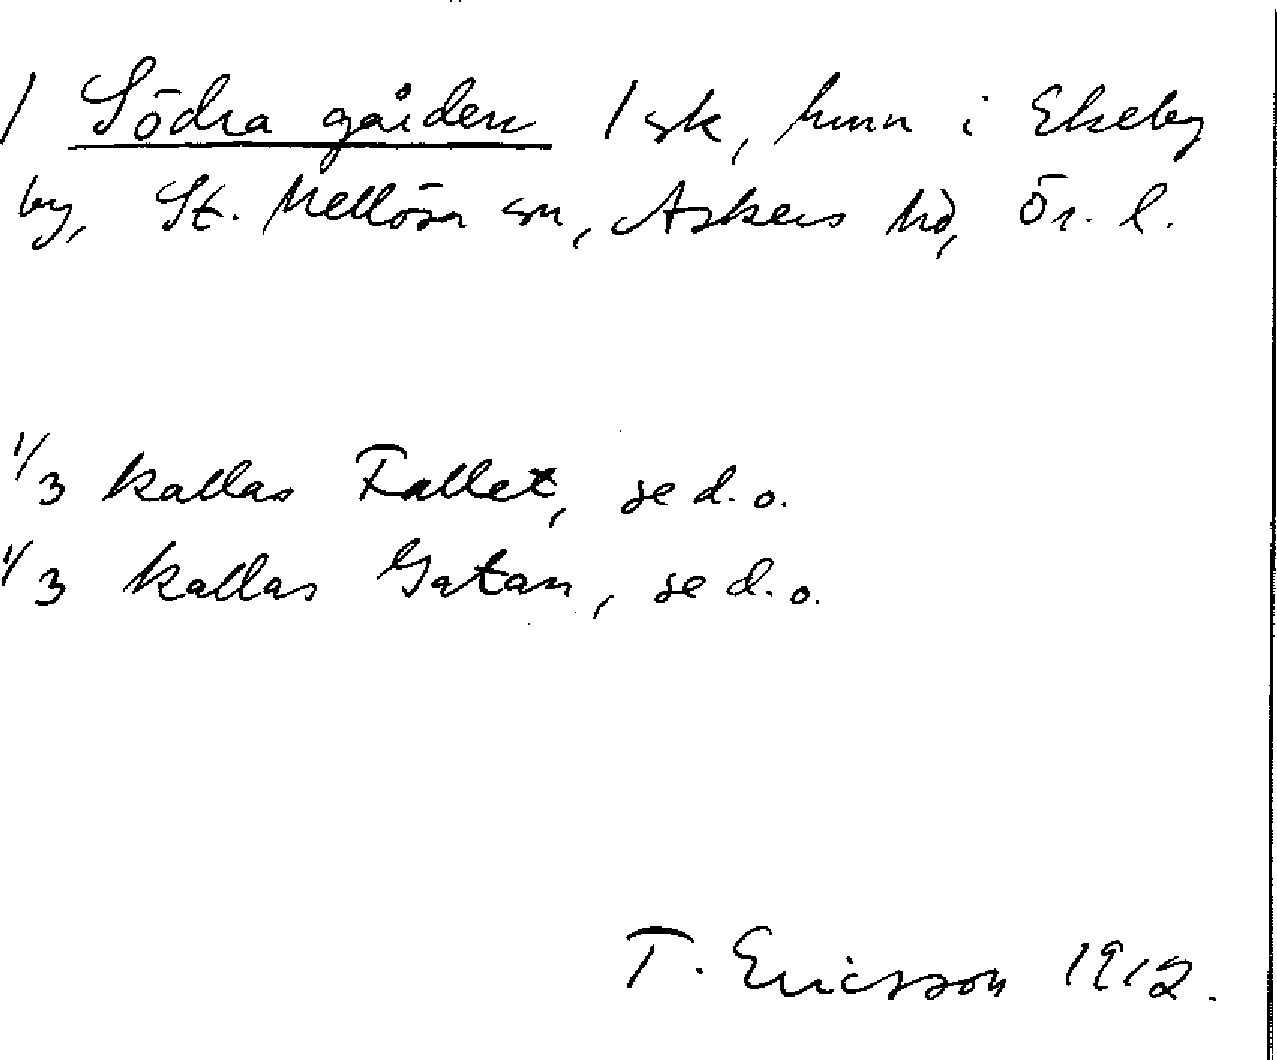 / Södra gården 1 sk, hmn i Ekeby
by, St. Mellösa sn, Askers hd, Ör. l.
1/3 kallas Fallet, se d. o.
1/3 kallas Gatan, se d. o.
T. Ericsson 1912.